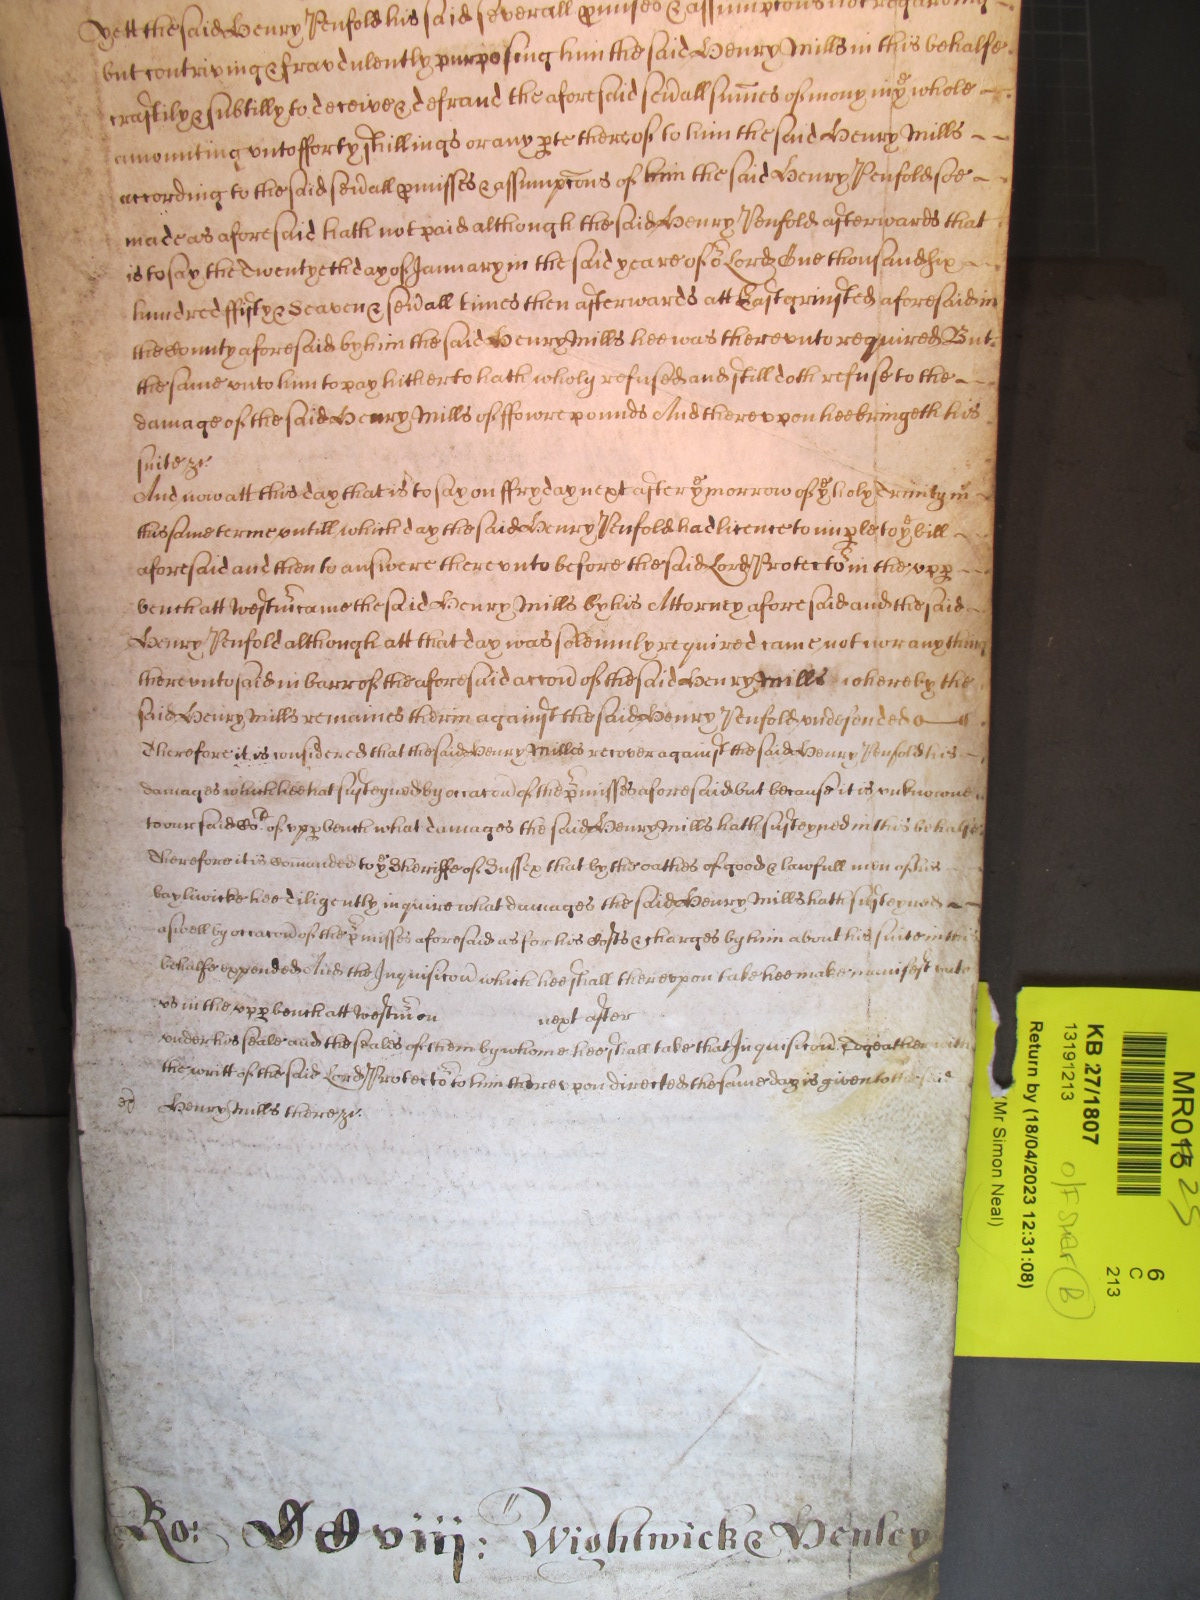 yett the said Henry Penfold his said severall pmises & assumpcons not regarding
but contriving & fravdulently purposeing him the said Henry Mills in this behalfe
craftily & subtilly to deceive & defraud the aforesaid sevall sum̄es of mony in yͤ whole
amounting vnto fforty shillings or any pte thereof to him the said Henry Mills
according to the said sevall pmisses & assumpcōns of him the said Henry Penfold soe
made as aforesaid hath not paid although the said Henry Penfold afterwards that
is to say the Twentyeth day of January in the said yeare of oʳ Lord One thousand six
hundred ffifty & Seaven & sevall times then afterwards att Eastgrinsted aforesaid in
the County aforesaid by him the said Henry Mills hee was therevnto required But
the same vnto him to pay hitherto hath wholy refused and still doth refuse to the
damage of the said Henry Mills of ffowre pounds And therevpon hee bringeth his
suite &c
And now att this day that is to say on ffryday next after yͤ morrow of yͤ holy Trinity in
this same terme vntill which day the said Henry Penfold had licence to imple to yͤ bill
aforesaid and then to answere therevnto before the said Lord Protectoʳ in the vpp
bench att Westmʳ came the said Henry Mills by his Attorney aforesaid and the said
Henry Penfold although att that day was solemnly required came not nor any thing
therevnto said in barr of the aforesaid accon̄ of the said Henry Mills whereby the
said Henry Mills remaines therin against the said Henry Penfold vndefended
Therefore it is considered that the said Henry Mills recover against the said Henry Penfold his
damages which hee hat susteyned by occacon̄ of the pʳmisses aforesaid but because it is vnknowne
to our said Coʳᵗ of vpp bench what damages the said Henry Mills hath susteyned in this behalfe
Therefore it is comanded to yͤ Sheriffe of Sussex that by the oathes of good & lawfull men of his
bayliwicke hee diligently inquire what damages the said Henry Mills hath susteyned
aswell by occacon̄ of the pʳmisses aforesaid as for his Costs & charges by him about his suite in this
behalfe expended And the Inquisicon̄ which hee shall therevpon take hee make manifest vnto
vs in the vpp bench att Westmʳ on next after
vnder his seale and the seales of them by whome hee shall take that Inquisicon̄ Togeather with
the writt of the said Lord Protectoʳ to him therevpon directed the same day is given to the said
Henry Mills there &c
Ro: CCviij: Wightwick & Henley
MR015
25
6
C
213
KB 27/1807
13191213
O/F Shar B
Return by (18/04/2023 12:31:08)
(Mr Simon Neal)